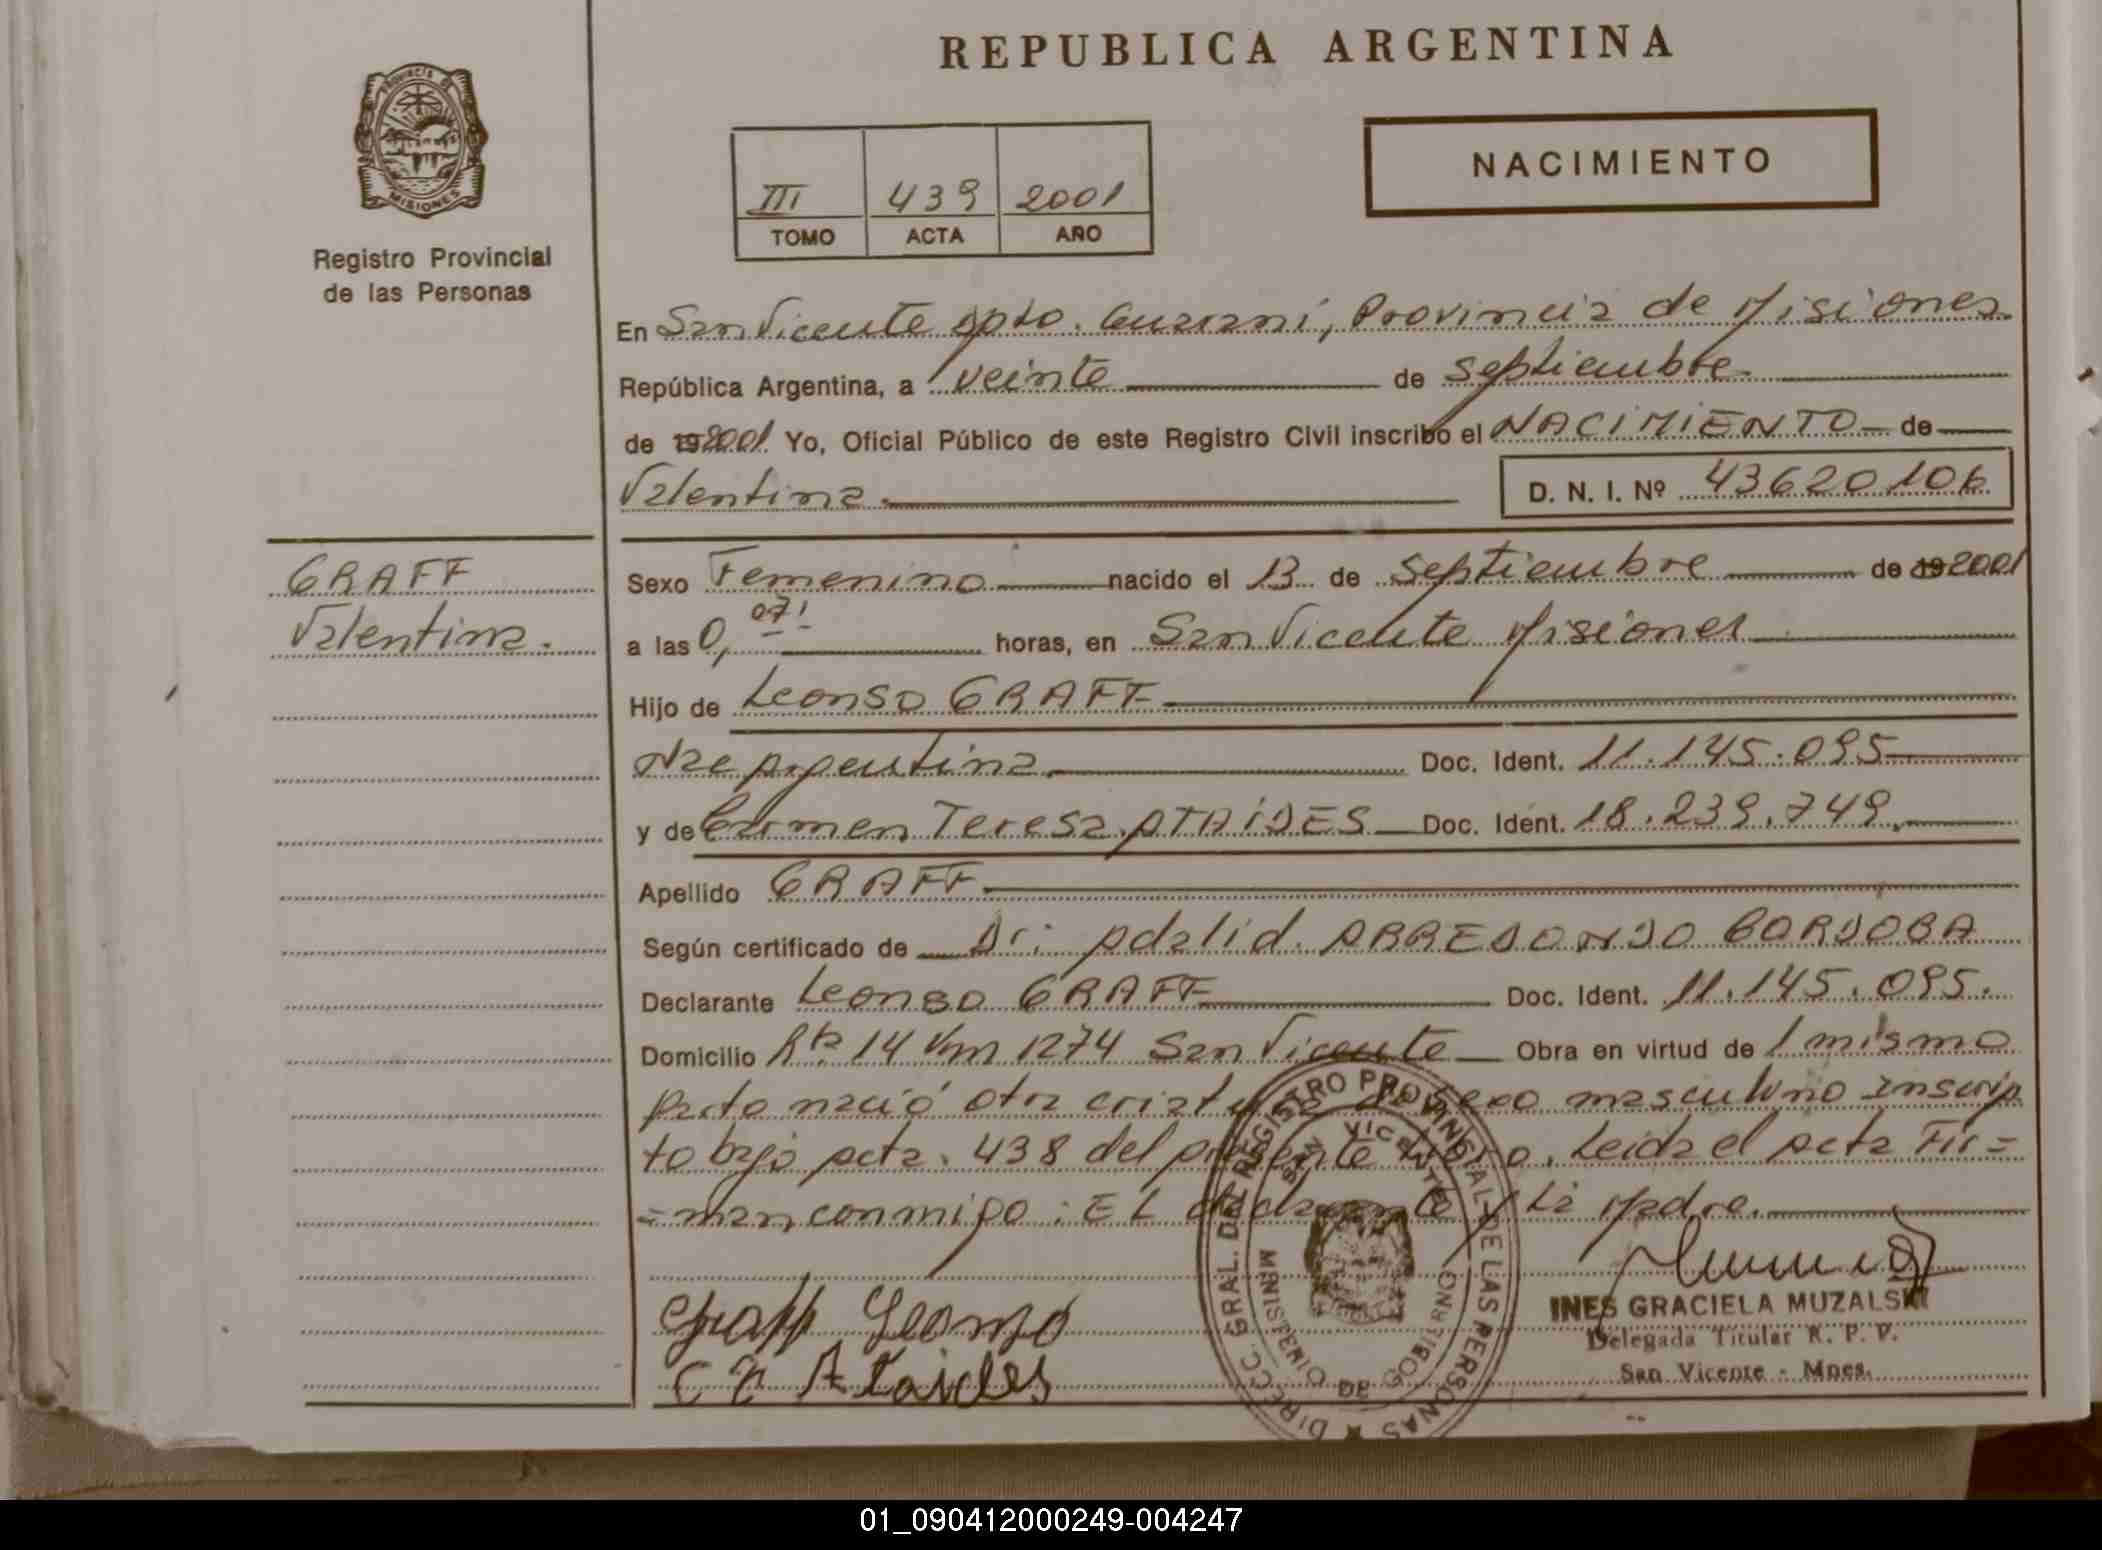 REPUBLICA ARGENTINA
PROVINCIA DE
MISIONES
Registro Provincial
de las Personas
NACIMIENTO
III 439 2001
TOMO ACTA AÑO
En San Vicente Dpto. Guaraní, Provincia de Misiones
República Argentina, a veinte de Septiembre
de 19 2001. Yo, Oficial Público de este Registro Civil inscribo el NACIMIENTO de
Valentina. D. N. I. Nº 43620106
GRAFF
Valentina.
Sexo Femenino nacido el 13 de Septiembre de 19 2001
a las 0,07' horas, en San Vicente Misiones
Hijo de Leonso GRAFF
Nac Argentina Doc. Ident. 11.145.095
y de Carmen Teresa ATAIDES Doc. Ident. 18.239.749.
Apellido GRAFF
Según certificado de Dr: Adalid ARREDONDO CORDOBA
Declarante Leonso GRAFF Doc. Ident. 11.145.095.
Domicilio Rta. 14 Km 1274 San Vicente Obra en virtud de 1 mismo
parto nació otra criatura de sexo masculino inscrip
to bajo acta. 438 del presente libro. Leida el acta Fir=
=man conmigo: EL declarante y La Madre.
Graff Leonso
C T Ataides
DIRECC. GRAL. DEL REGISTRO PROVINCIAL DE LAS PERSONAS
SAN VICENTE
MINISTERIO DE GOBIERNO
INES GRACIELA MUZALSKI
Delegada Titular R. P. P.
San Vicente - Mnes.
01_090412000249-004247